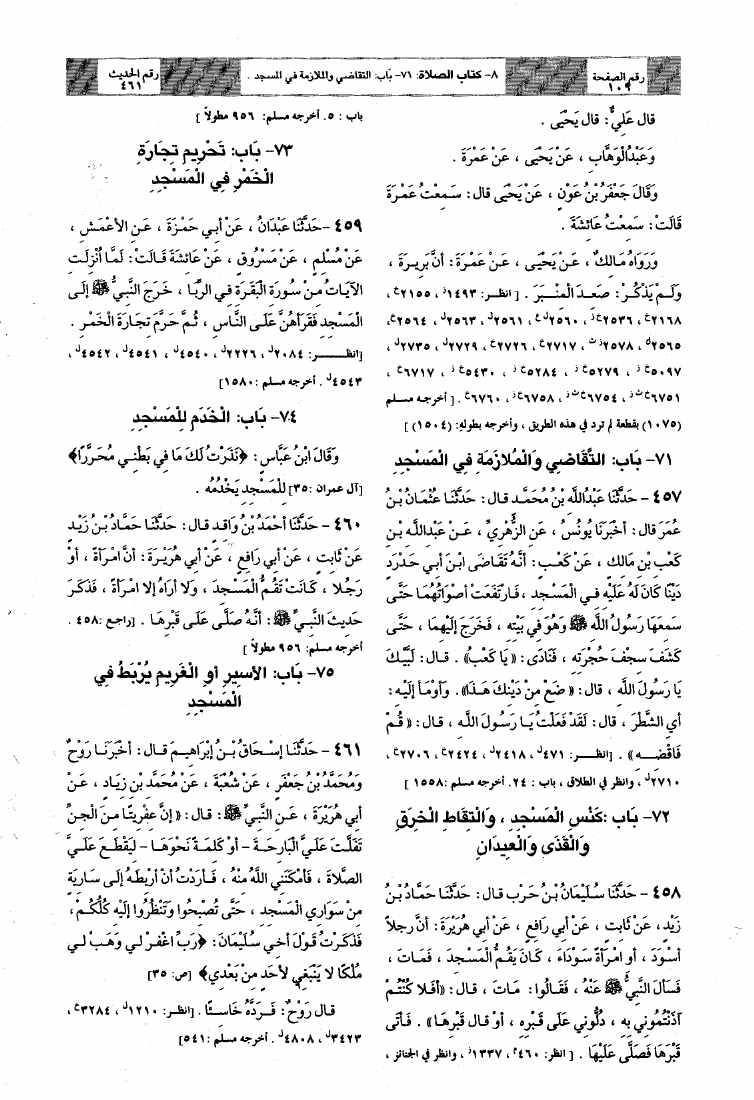 رقم الصفحة
١٠٩
٨- كتاب الصلاة: ٧١- بَاب: التقاضي والملازمة في المسجد .
رقم الحديث
٤٦١
قال عَليٌّ: قال يَحْيَى .
وَعَبْدُالْوَهَّاب ، عَنْ يَحْيَى ، عَنْ عَمْرَةَ .
وَقَالَ جَعْفَرُ بْنُ عَوْن ، عَنْ يَحْيَى قال: سَمعْتُ عَمْرَةَ
قَالَتْ: سَمعْتُ عَائشَةَ .
وَرَوَاهُ مَالكٌ ، عَنْ يَحْيَى ، عَنْ عَمْرَةَ: أنَّ بَريرَةَ ،
وَلَـم يَذْكُرْ: صَعدَ الْمنْبَرَ . [ انظر: ١٤٩٣، ٢١٥٥،
٢١٦٨، ٢٥٣٦، ٢٥٦٠، ٢٥٦١، ٢٥٦٣، ٢٥٦٤،
٢٥٦٥، ٢٥٧٨، ٢٧١٧، ٢٧٢٦، ٢٧٢٩، ٢٧٣٥،
٥٠٩٧، ٥٢٧٩، ٥٢٨٤، ٥٤٣٠، ٦٧١٧،
٦٧٥١، ٦٧٥٤، ٦٧٥٨، ٦٧٦٠. [ أخرجه مسلم
(١٠٧٥) بقطعة لم ترد في هذه الطريق ، وأخرجه بطوله: (١٥٠٤) ]
٧١- بَاب: التَّقَاضي وَالْمُلازَمَة في الْمَسْجد
٤٥٧ - حَدَّثَنَا عَبْدُاللَّه بْنُ مُحَمَّـد قـال: حَدَّثَنَا عُثْمَانُ بْنُ
عُمَرَ قال: أخْبَرَنَا يُونُسُ ، عَن الزُّهْرِيِّ ، عَـنْ عَبْداللَّه بْن
كَعْب بْن مَالك ، عَنْ كَعْب: أنَّهُ تَقَاضَى ابْنَ أبي حَدْرَد
دَيْنًا كَانَ لَهُ عَلَيْه فـي الْمَسْجد ، فَارْتَفَعَتْ أصْوَاتُهُمَا حَتَّى
سَمعَهَا رَسُولُ اللَّه ﷺ وَهُوَ في بَيْته ، فَخَرَجَ إلَيْهمَا ، حَتَّى
كَشَفَ سجْفَ حُجْرَته ، فَنَادَى: « يَا كَعْبُ» . قـال: لَبَّيْكَ
يَا رَسُولَ اللَّه ، قال: « ضَعْ منْ دَيْنكَ هَـذَا» . وَأوْمَأ إلَيْه:
أي الشَّطْرَ ، قال: لَقَدْ فَعَلْتُ يَا رَسُولَ اللَّـه ، قـال: « قُـمْ
فَاقْضـه » . [انظـر: ٤٧١، ٢٤١٨، ٢٤٢٤، ٢٧٠٦،
٢٧١٠، وانظر في الطلاق ، باب : ٢٤. أخرجه مسلم :١٥٥٨ ]
٧٢- بَاب :كَنْس الْمَسْجد ، وَالْتقَاط الْخرَق
وَالْقَذَى وَالْعيدَان
٤٥٨ - حَدَّثَنَا سُلَيْمَانُ بْنُ حَرْب قال: حَدَّثَنَا حَمَّادُ بْنُ
زَيْد، عَنْ ثَابت ، عَنْ أبي رَافع ، عَنْ أبي هُرَيْرَةَ: أنَّ رَجُلاً
أسْوَدَ ، أو امْرَأةً سَوْدَاءَ ، كَانَ يَقُمُّ الْمَسْجدَ ، فَمَاتَ ،
فَسَألَ النَّبيُّ ﷺ عَنْهُ ، فَقَالُوا: مَاتَ ، قال: «أفَلا كُنْتُمْ
آذَنْتُمُوني به ، دُلُّوني عَلَى قَبْره ، أوْ قال قَبْرهَا» . فَأتَى
قَبْرَهَا فَصَلَّى عَلَيْهَا . [ انظر: ٤٦٠، ١٣٣٧، وانظر في الجنائز ،
باب : ٥. أخرجه مسلم: ٩٥٦ مطولاً ]
٧٣- بَاب: تَحْريم تجَارَة
الْخَمْر في الْمَسْجد
٤٥٩ -حَدَّثَنَا عَبْدَانُ ، عَنْ أبي حَمْزَةَ ، عَـن الأعْمَش ،
عَنْ مُسْلم ، عَنْ مَسْرُوق ، عَنْ عَائشَةَ قَالَتْ: لَمَّا أُنْزلَت
الآيَاتُ منْ سُورَة الْبَقَرَة في الرِّبَا ، خَرَجَ النَّبيُّ ﷺ إلَى
الْمَسْجد فَقَرَأهُنَّ عَلَى النَّاس ، ثُـمَّ حَرَّمَ تجَارَةَ الْخَمْر .
[انظـر: ٢٠٨٤، ٢٢٢٦، ٤٥٤٠، ٤٥٤١، ٤٥٤٢،
٤٥٤٣. أخرجه مسلم :١٥٨٠]
٧٤- بَاب: الْخَدَم للْمَسْجد
وَقَالَ ابْنُ عَبَّاس: ﴿نَذَرْتُ لَكَ مَا في بَطْني مُحَرَّرًا﴾
[آل عمران :٣٥] للْمَسْجد يَخْدُمُهُ .
٤٦٠ - حَدَّثَنَا أحْمَدُ بْنُ وَاقد قال: حَدَّثَنَا حَمَّادُ بْنُ زَيْد
عَنْ ثَابت ، عَنْ أبي رَافع ، عَنْ أبي هُرَيْرَةَ: أنَّ امْرَأةً ، أوْ
رَجُلا ، كَانَتْ تَقُمُّ الْمَسْجدَ ، وَلا أرَاهُ إلا امْرَأةً ، فَذَكَرَ
حَديثَ النَّبيِّ ﷺ: أنَّهُ صَلَّى عَلَى قَبْرهَا . [راجع :٤٥٨ .
أخرجه مسلم: ٩٥٦ مطولاً ]
٧٥- بَاب: الأسير أو الْغَريم يُرْبَطُ في
الْمَسْجد
٤٦١ - حَدَّثَنَا إسْحَاقُ بْـنُ إبْرَاهيـمَ قـال: أخْبَرَنَـا رَوْحٌ
وَمُحَمَّدُ بْنُ جَعْفَر ، عَنْ شُعْبَةَ ، عَنْ مُحَمَّد بْن زيَاد ، عَـنْ
أبي هُرَيْرَةَ ، عَـن النَّبيِّ ﷺ: قال: «إنَّ عفْريتًا مـنَ الْجنِّ
تَفَلَّتَ عَلَـيَّ الْبَارحَـةَ - أوْ كَلمَـةً نَحْوَهَـا - ليَقْطَعَ عَلَـيَّ
الصَّلاةَ ، فَأمْكَنَني اللَّهُ منْهُ ، فَـأرَدْتُ أنْ أرْبطَهُ إلَى سَاريَة
منْ سَوَاري الْمَسْجد ، حَتَّى تُصْبحُوا وَتَنْظُرُوا إلَيْه كُلُّكُمْ،
فَذَكَرْتُ قَوْلَ أخي سُلَيْمَانَ: ﴿رَبِّ اغْفـرْ لـي وَهَـبْ لـي
مُلْكًا لا يَنْبَغي لأحَد منْ بَعْدي﴾ [ص: ٣٥]
قال رَوْحٌ: فَـرَدَّهُ خَاسـئًا . [انظر: ١٢١٠، ٣٢٨٤،
٣٤٢٣، ٤٨٠٨. أخرجه مسلم :٥٤١]